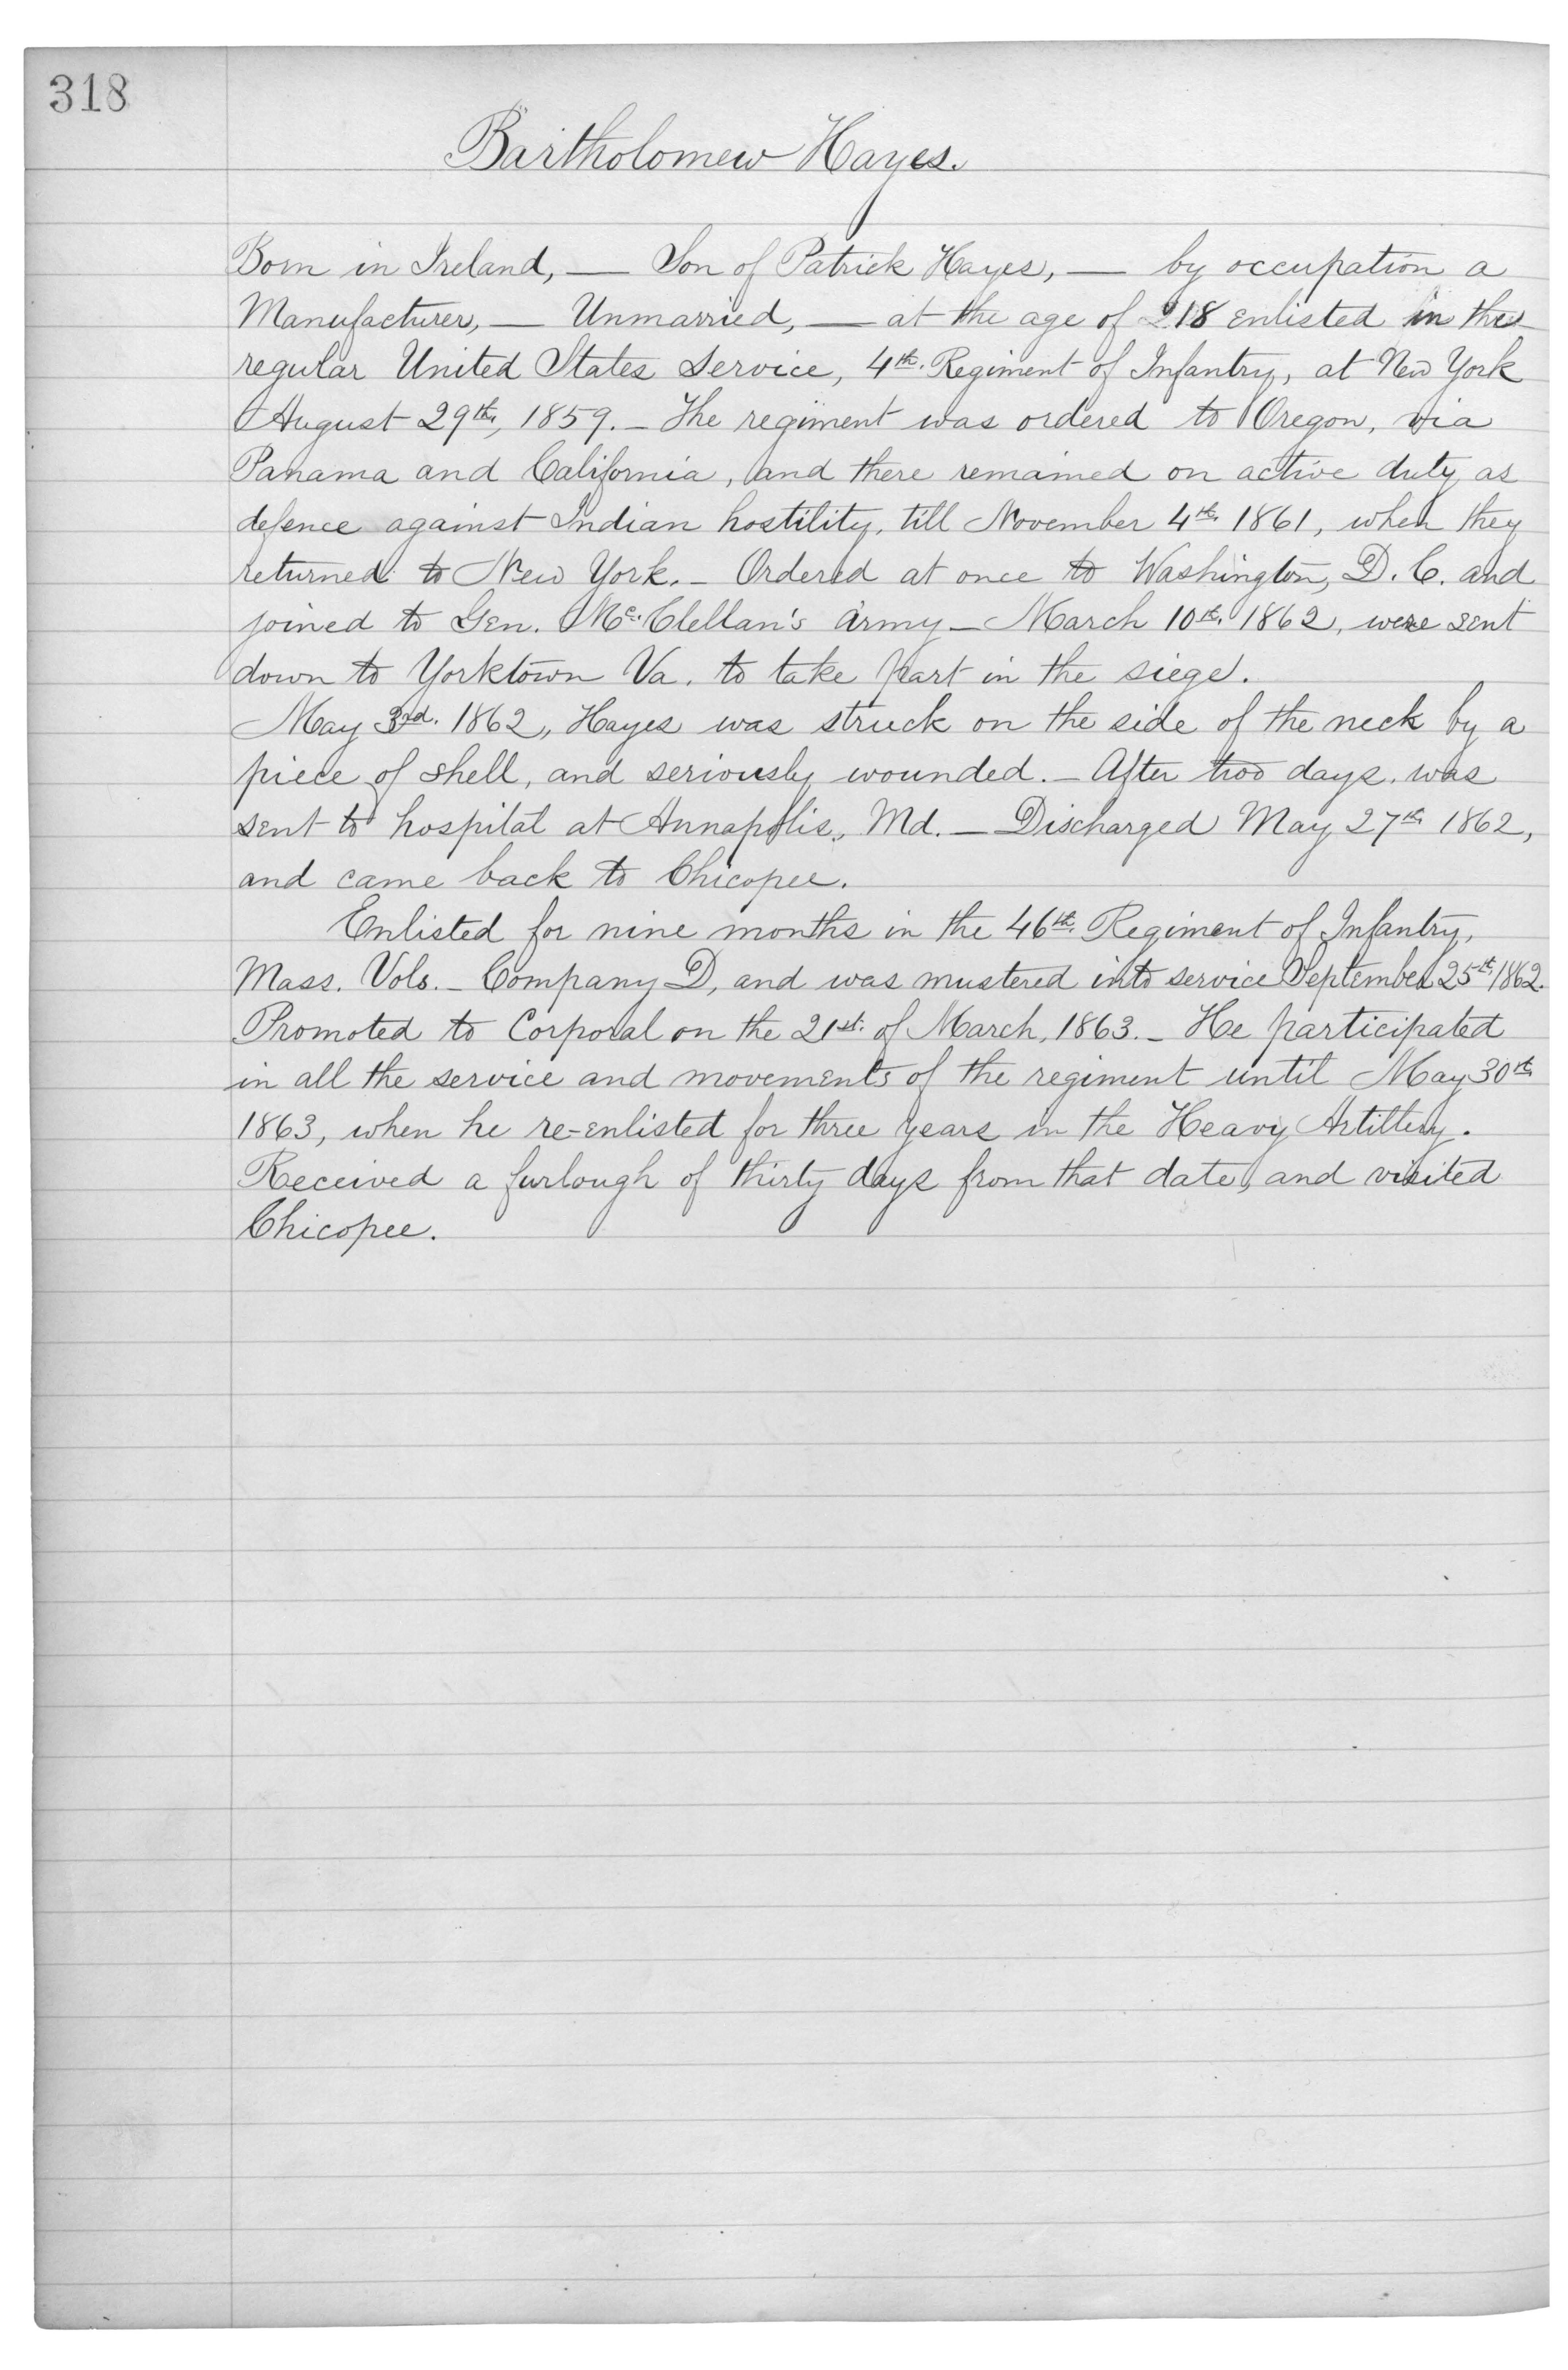 318
Bartholomew Hayes.
Born in Ireland, — Son of Patrick Hayes, — by occupation a
Manufacturer, — Unmarried, — at the age of 18 enlisted in the
regular United States Service, 4th. Regiment of Infantry, at New York
August 29th, 1859. – The regiment was ordered to Oregon, via
Panama and California, and there remained on active duty as
defence against Indian hostility, till November 4th. 1861, when they
returned to New York. – Ordered at once to Washington, D. C. and
joined to Gen. Mc.Clellan's army – March 10th. 1862, were sent
down to Yorktown Va. to take part in the siege.
May 3rd. 1862, Hayes was struck on the side of the neck by a
piece of shell, and seriously wounded. – After two days, was
sent to hospital at Annapolis, Md. – Discharged May 27th 1862,
and came back to Chicopee.
Enlisted for nine months in the 46th. Regiment of Infantry,
Mass. Vols. – Company D, and was mustered into service September 25th 1862.
Promoted to Corporal on the 21st. of March, 1863. – He participated
in all the service and movements of the regiment until May 30th
1863, when he re-enlisted for three years in the Heavy Artillery.
Received a furlough of thirty days from that date, and visited
Chicopee.